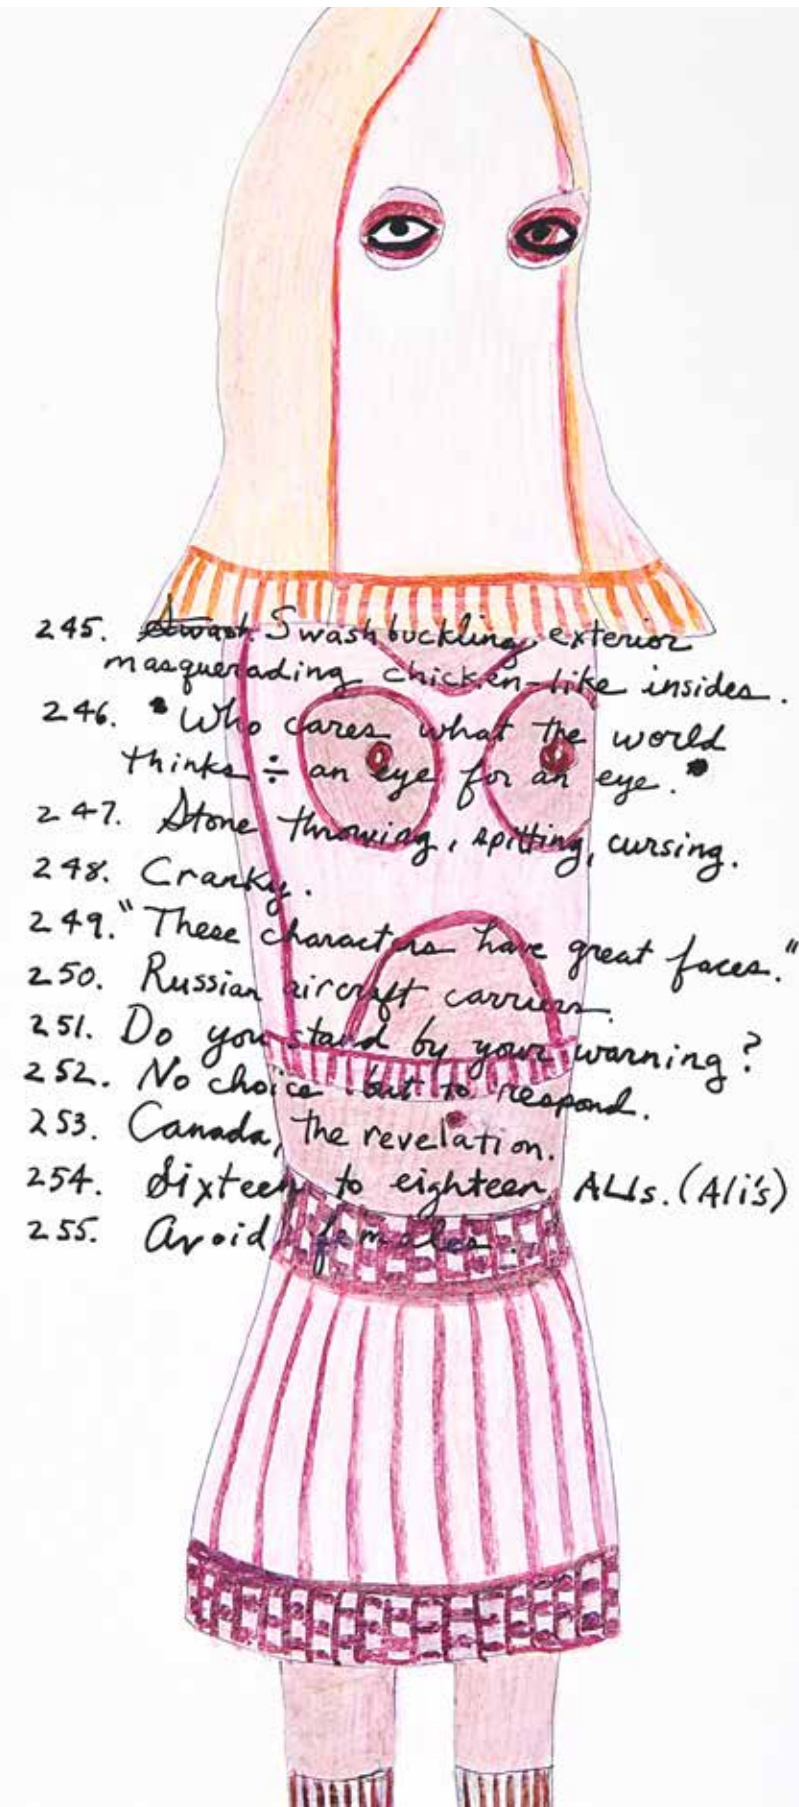 245. Swash Swashbuckling exterior
masquerading chicken-like insides.
246. "Who cares what the world
thinks ÷ an eye for an eye."
247. Stone throwing, spitting, cursing.
248. Cranky.
249. "These characters have great faces."
250. Russian aircraft carriers.
251. Do you stand by your warning?
252. No choice but to respond.
253. Canada, the revelation.
254. Sixteen to eighteen ALIs. (Ali's)
255. Avoid females.